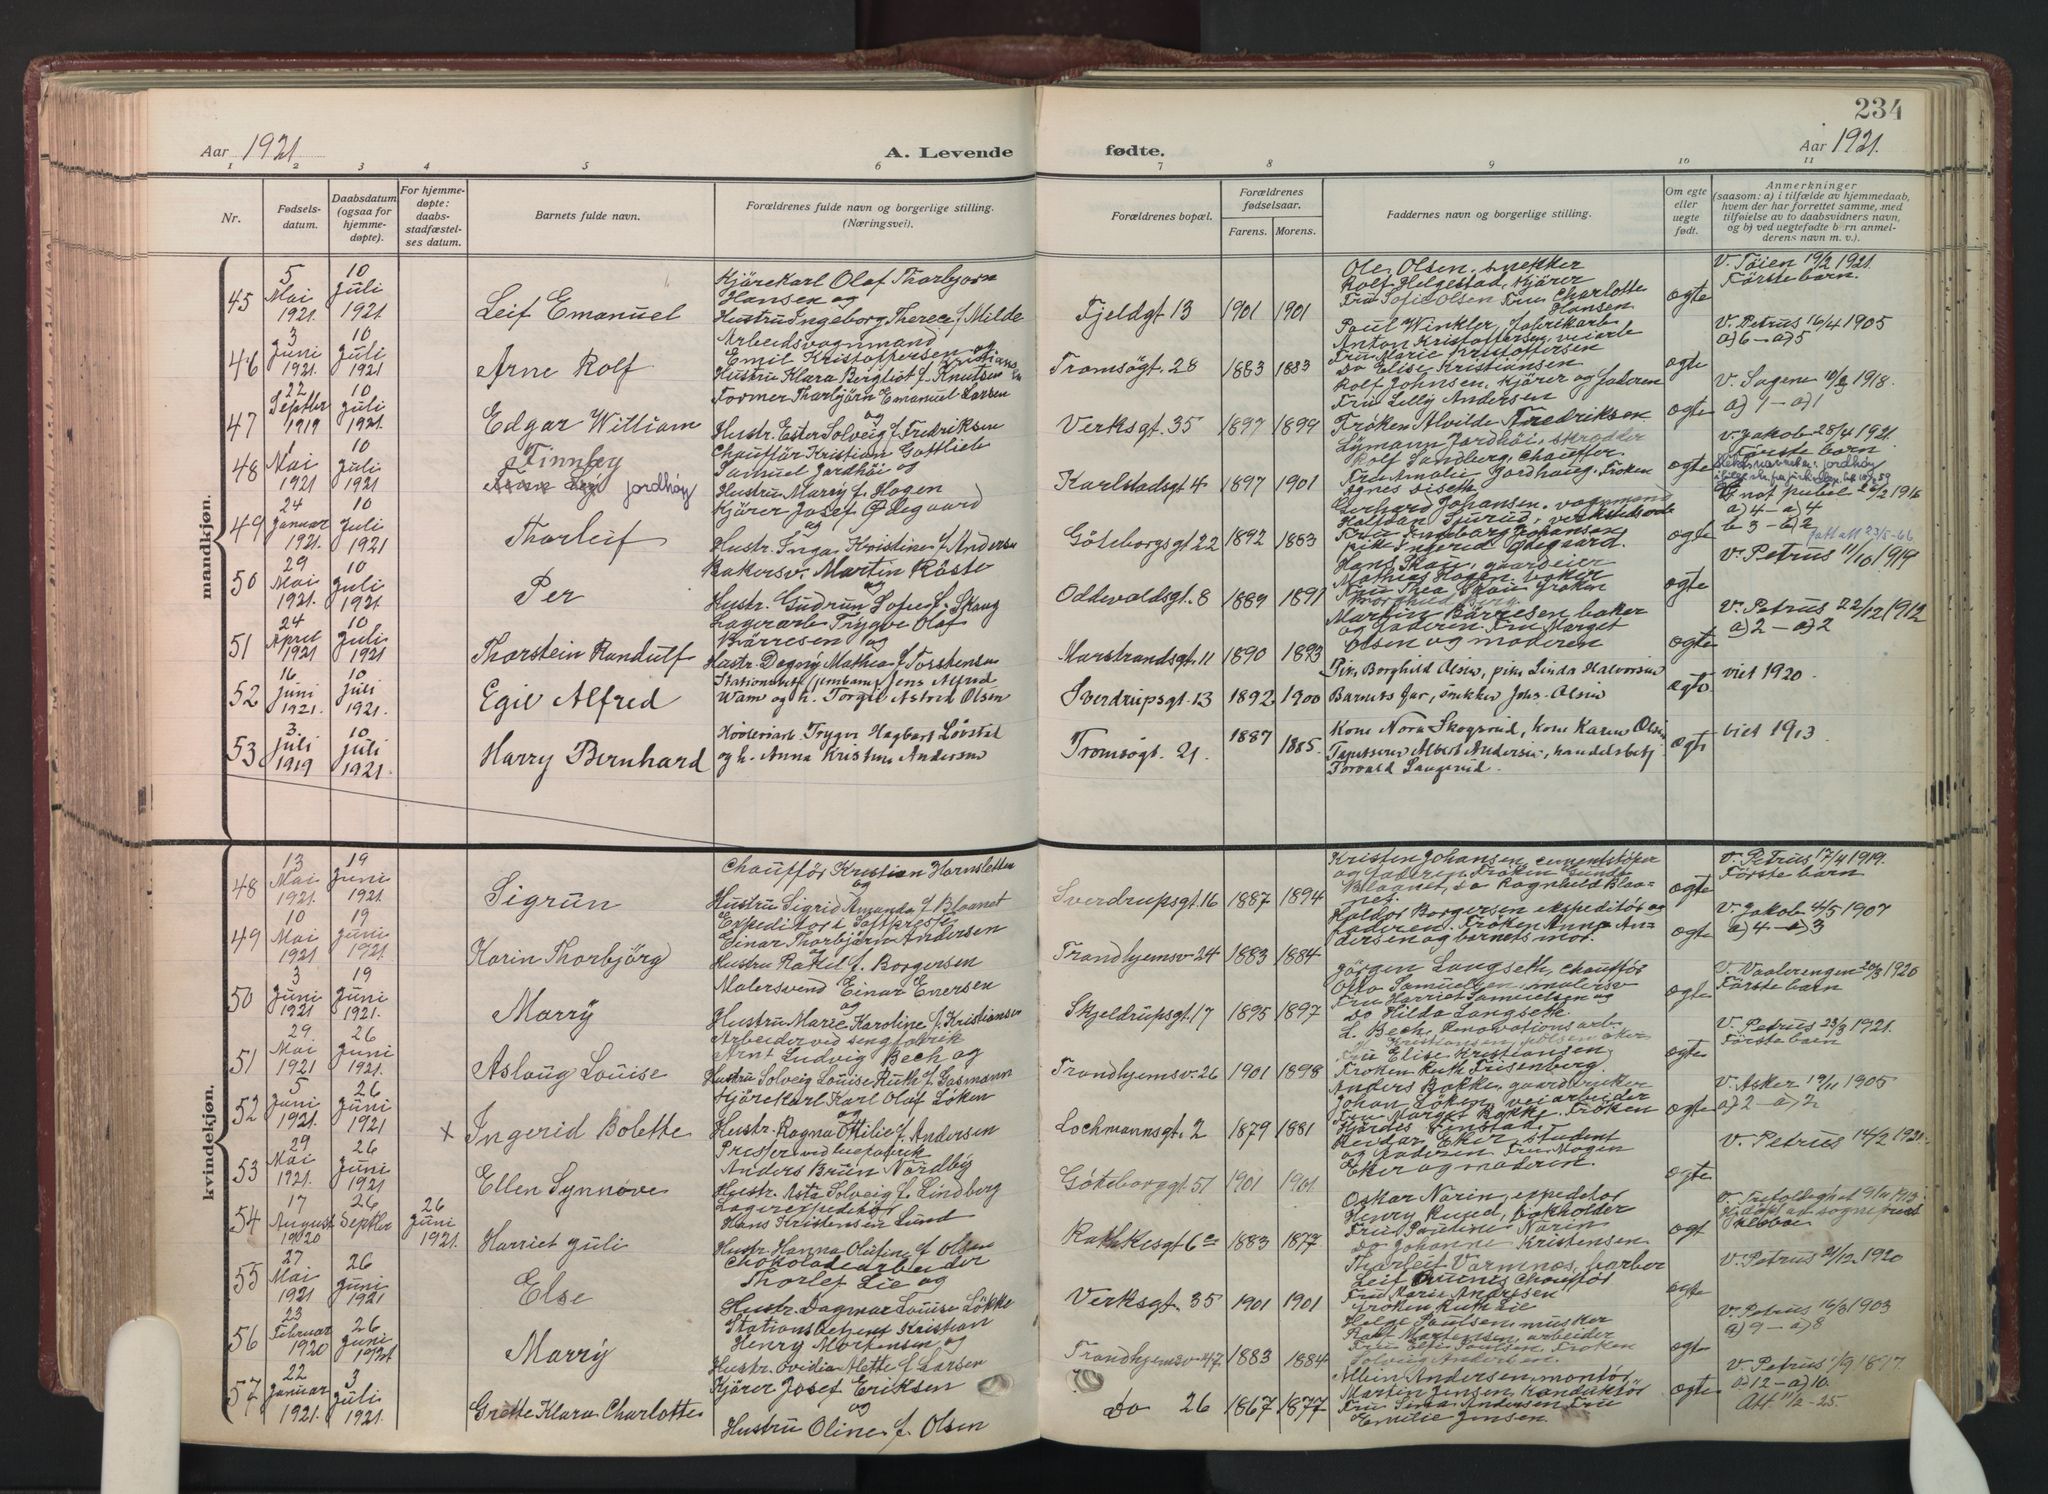 234
Aar 1921.
A. Levende
fødte.
Aar 1921.
1 2 3 4 5 6 7 8 9 10 11
Nr.
Fødselsdatum.
Daabsdatum (ogsaa for hjemmedøpte).
For hjemmedøpte: daabsstadfæstelses datum.
Barnets fulde navn.
Forældrenes fulde navn og borgerlige stilling. (Næringsvei).
Forældrenes bopæl.
Forældrenes fødselsaar.
Farens. Morens.
Faddernes navn og borgerlige stilling.
Om egte eller uegte født.
Anmerkninger
(saasom: a) i tilfælde av hjemmedaab,
hvem der har forrettet samme, med
tilføielse av to daabsvidners navn,
og b) ved uegtefødte barn anmelderens navn m. v.).
mandkjøn.
45
5 Mai 1921.
10 Juli 1921.
Leif Emanuel
Kjörekarl Olaf Thorbjorn
Hansen og
Hustru Ingeborg Therese f Milde
Fjeldgt 13
1901 1901
Ole Olsen, snekker
Rolf Helgestad, Kjörer
Fru Sofie Olsen Fru Charlotte
Hansen
ægte
V. Töien 19/2 1921.
Förste barn.
46
3 Juni 1921.
10 Juli 1921
Arne Rolf
Arbeidsvognmand
Emil Kristoffersen og
Hustru Klara Bergliot f. Kristiansen
Tromsögt. 28
1883 1883
Paul Winkler, fabrikarb
Anton Kristoffersen, veiarb
Fru Marie Kristoffersen
Do Elise Kristiansen
ægte
V. Petrus 16/4 1905
a) 6 – a) 5
47
22 Septbr 1919
10 Juli 1921.
Edgar William
Former Thorbjörn Emanuel Larsen
og
Hustr. Ester Solveig f Fredriksen
Verksgt. 35
1897 1899
Rolf Johnsen, Kjörer og faderen
Fru Lilly Andersen
Fröken Alvilde Fredriksen
ægte
V. Sagene 1918.
a) 1 – a) 1
48
Mai 1921
10 Juli 1921
Finnley
Jordhøy
Chaufför Kristian Gottlieb
Samuel Jordhöi og
Hustru Marry f. Hagen
Karlstadsgt 4
1897 1901
Jordhöi, skrædder
Rolf Sandberg, Chauffør.
Fru Amalie Jordhaug. Fröken
Agnes Lisette
ægte
V. Jakob 28/4 1921.
Første barn
49
24 Januar 1921.
10 Juli 1921
Thorleif
Kjörer Josef Ödegaard
og
Hustr. Inga Kristine f Andersen
Göteborgsgt 22
1892 1883
Gerhard Johansen. vognmand
Halfdan Sjurud, verkstedsarb
Fru Ingeborg Johansen
Pike Ingerid Ödegaard.
ægte
a) 4 – a) 4
b 3 – b) 2
Fatt att 23/5-66
50
29 Mai 1921.
10 Juli 1921.
Per
Bakersv. Martin Röste
og
Hustr. Gudrun Sofie f. Skaug
Oddevaldsgt. 8
1889 1891
Hans Skau, gaardeier
Mathias Hagen, baker
Fru Thea Skau, fröken
Borghild Berg.
ægte
V. Petrus 11/10 1919
51
24 April 1921
10 Juli 1921.
Thorstein Randulf
Lagerarb Trygve Olaf
Börresen og
Hustr. Dagny Mathea f Torstensen
Marstrandsgt. 11
1890 1893
Martin Börresen baker
og faderen Fru Marget
Olsen og moderen
ægte
V. Petrus 22/12 1912
a) 2 – a) 2
52
16 Juni 1921.
10 Juli 1921.
Egil Alfred
Stationsbetj. (jernbane) Jens Alfred
Wam og h. Torgil Astrid Olsen
Sverdrupsgt. 13
1892 1900
Pike Borghild Olsen, pike Linda Halvorsen
Barnets far, snekker Johs. Olsen
ægte
viet 1920.
53
3 Juli 1919
10 Juli 1921.
Harry Bernhard
Trygve Hagbart Løvstad
og h. Anna Kristine Andersen
Tromsögt. 21.
1887 1885.
Kone Nora Skogsrud, kone Karen Olsen
Albert Andersen, handelsbetj
Torvald Laugerud.
ægte
viet 1913
kvindekjøn.
48
13 Mai 1921.
19 Juni 1921.
Sigrun
Chaufför Kristian Hornsletten
og
Hustru Sigrid Amanda f Blaanet
Sverdrupsgt. 16
1887 1894
Kristen Johansen, cementstöper
og faderen Fröken Gunda
Blaanet, Do Ragnhild Blaanet.
ægte
V. Petrus 17/4 1919.
Förste barn
49
10 Mai 1921
19 Juni 1921.
Karin Thorbjörg
Expeditör i Saftpresseri
Einar Thorbjörn Andersen
og
Hustru Rakel f. Borgersen
Trondhjemsv 24
1883 1884
Haldor Borgersen ekspeditör og
faderen. Fröken Anna Andersen og barnets mor.
ægte
V. Jakob 4/5 1907
a) 4 – a) 3
50
3 Juni 1921
19 Juni 1921.
Marry
Malersvend Einar Enersen
og
Hustru Marie Karoline f. Kristiansen
Skjeldrupsgt. 17
1895 1897
Jörgen Langseth, Chaufför
Otto Samuelsen, malersv
Fru Harriet Samuelsen og
Do Hilda Langseth.
ægte
V. Vaalerengen 20/3 1920
Förste barn
51
29 Mai 1921
26 Juni 1921.
Aslaug Louise
Arbeider ved sengfabrik
Arnt Ludvig Bech og
Hustru Solveig Louise Ruth f. Gasmann
Trondhjemsv. 26
1901 1898
L. Bech, Renovationsarb.
Kristiansen, pölsemaker
Fru Elise Kristiansen
Fröken Ruth Frisenberg.
ægte
V. Petrus 23/3 1921.
Förste barn
52
5 Juni 1921.
26 Juni 1921
x Ingerid Bolette
Kjörekarl Karl Olaf Löken
og
Hustr. Ragna Ottilie f. Andersen
Lochmannsgt. 2
1879 1881
Anders Bakke, gaardbruker
Johan Löken, veiarbeider
Fru Marget Bakke. Fröken
Hjördis Finstad
ægte
V. Asker 19/11 1905
a) 2 – a) 2
53
29 Mai 1921.
26 Juni 1921
Ellen Synnöve
Anders Brun Nordby
Hustr. Asta Solveig f. Lindberg
Göteborggt. 51
1901 1901
Reidar Eker, student
og faderen. Fru Mogen
Eker og moderen.
ægte
V. Petrus 14/2 1921.
54
17 August 1920
26 Septbr
26 Juni 1921.
Harriet Juli
Lagerexpeditör
Hans Kristensen Lund
Hustr. Hanna Olufine f Olsen
Rathkesgt 6
1883 1877
Oskar Norin, expeditör
Henry Ruud, bokholder
Fru Pauline Norin
Do Johanne Kristensen
ægt
55
27 Mai 1921
26 Juni 1921
Else
Chokoladearbeider
Thorlef Lie og
Hustr. Dagmar Louise Lökke
Verksgt. 35
1901 1901
Thorleif Varmnæs, barber
Leif Chaufför
Fru Marie Andersen
Fröken Ruth Lie
ægte
V. Petrus 21/12 1920
56
23 Februar 1920
26 Juni 1921
Marry
Stationsbetjent Kristian
Henry Mortensen og
Hustr. Ovidia Alette f. Larsen
Trondhjemsv. 47
1883 1884
Helge Paulsen, musiker
Rolf Mortensen, arbeider
Fru Elfi Paulsen, Fröken
Solveig Andersen.
ægte
V. Petrus 16/3 1903
a) 9 – a) 8
57
22 Januar 1921.
3 Juli 1921.
Grette Klara Charlotte
Kjörer Josef Eriksen
og
Hustru Oline f. Olsen
Do 26
1867 1877
Albin Andersen, montör
Martin Jensen, Konduktör
Fru Sina Andersen Fru
Emilie Jensen.
ægte
a) 12 – a) 10
Att 11/2 – 25.